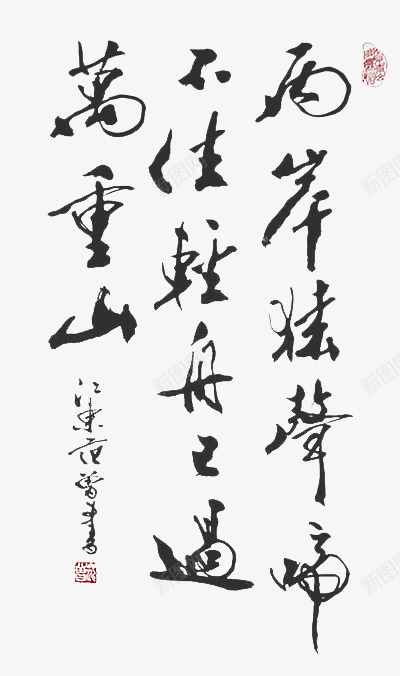 两岸猿聲啼
不住輕舟已過
萬重山
江東范曾書
新图网